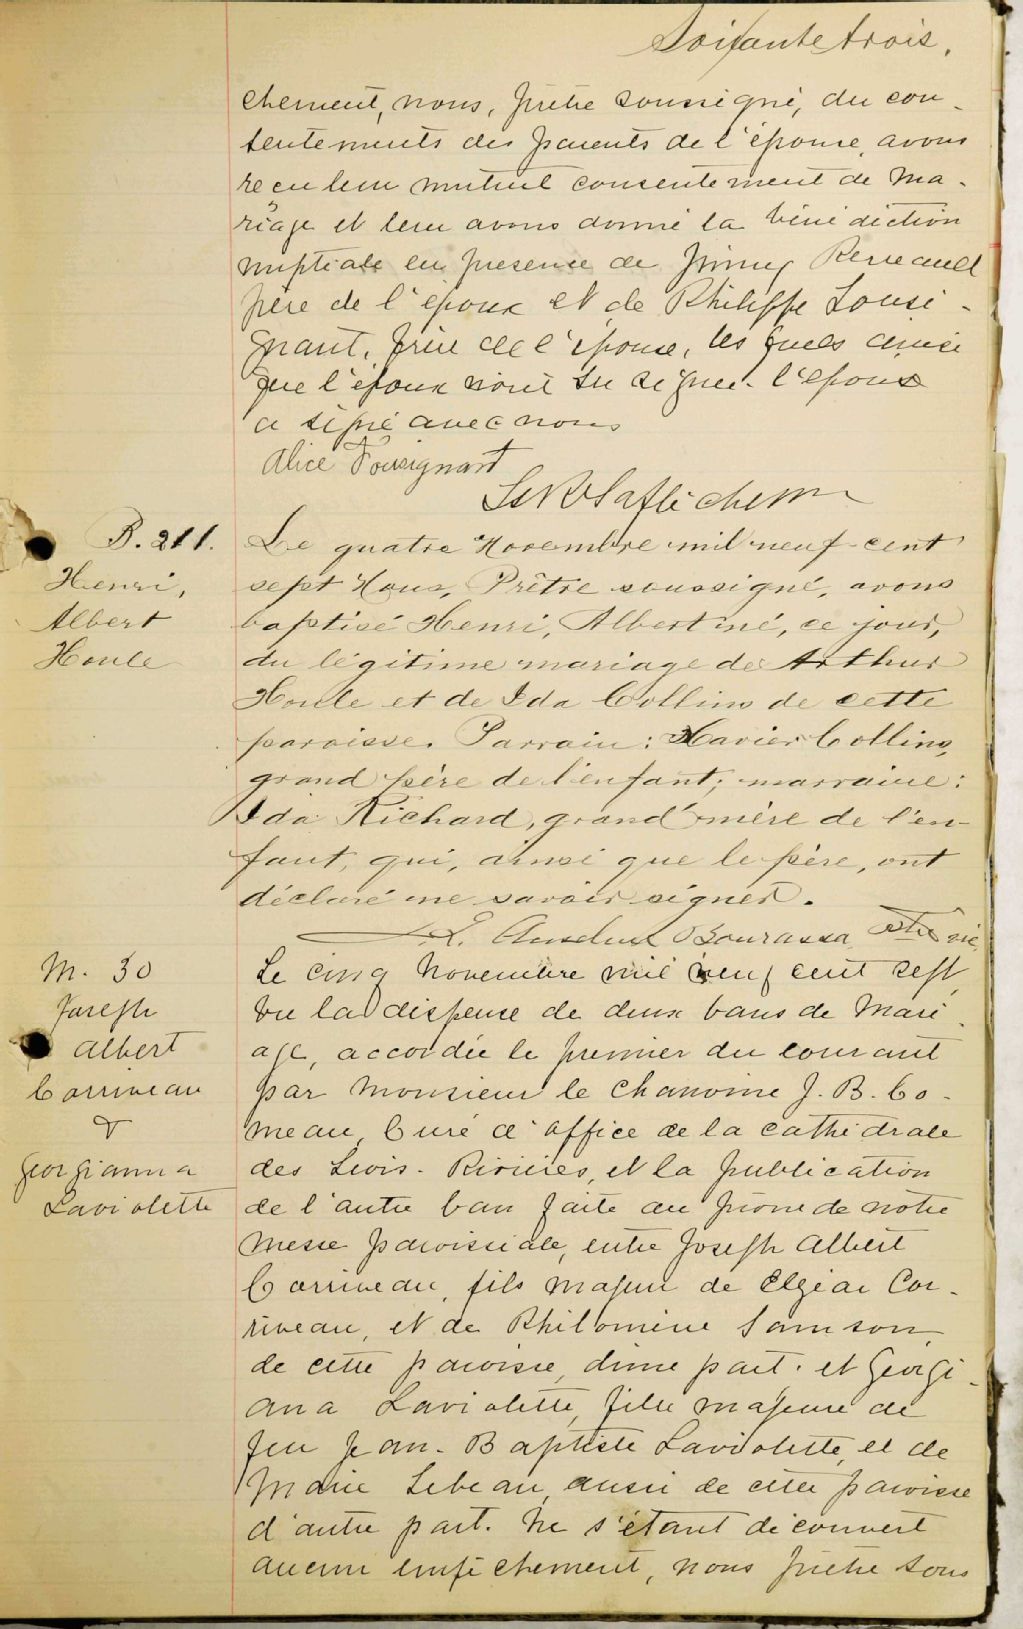 Soixante trois.
chement, nous, prêtre soussigné, du con-
sentements des parents de l'épouse, avons
reçu leur mutuel consentement de ma-
riage et leur avons donné la bénédiction
nuptiale en presence de Jimmy Perreault
père de l'époux et de Philippe Lousi-
gnant, frère de l'épouse, les quels ainsi
que l'époux n'ont su signer. l'épouse
a signé avec nous
Alice Lousignant
Laflèche
B. 211.
Henri,
Albert
Houle
Le quatre Novembre mil neuf cent
sept Nous, Prêtre soussigné, avons
baptisé Henri, Albert né, ce jour,
du légitime mariage de Arthur
Houle et de Ida Collins de cette
paroisse. Parrain: Xavier Collins,
grand père de l'enfant; marraine:
Ida Richard, grand'mère de l'en-
fant, qui, ainsi que le père, ont
déclaré ne savoir signer.
Bourassa, Ptre vic.
M. 30
Joseph
Albert
Corriveau
&
Georgianna
Laviolette
Le cinq Novembre mil neuf cent sept,
vu la dispense de deux bans de mari-
age, accordée le premier du courant
par Monsieur le Chanoine J. B. Co-
meau, Curé d'office de la cathédrale
des Trois-Rivières, et la publication
de l'autre ban faite au prône de notre
messe paroissiale, entre Joseph Albert
Corriveau, fils majeur de Elzéar Cor-
riveau, et de Philomène Samson,
de cette paroisse, d'une part. et Georgi-
ana Laviolette, fille majeure de
feu Jean-Baptiste Laviolette, et de
Marie Lebeau, aussi de cette paroisse
d'autre part. Ne s'étant découvert
aucun empêchement, nous prêtre sous